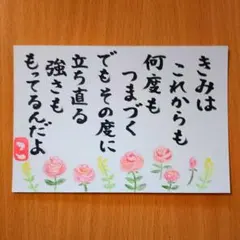 きみは
これからも
何度も
つまづく
でもその度に
立ち直る
強さも
もってるんだよ
こ